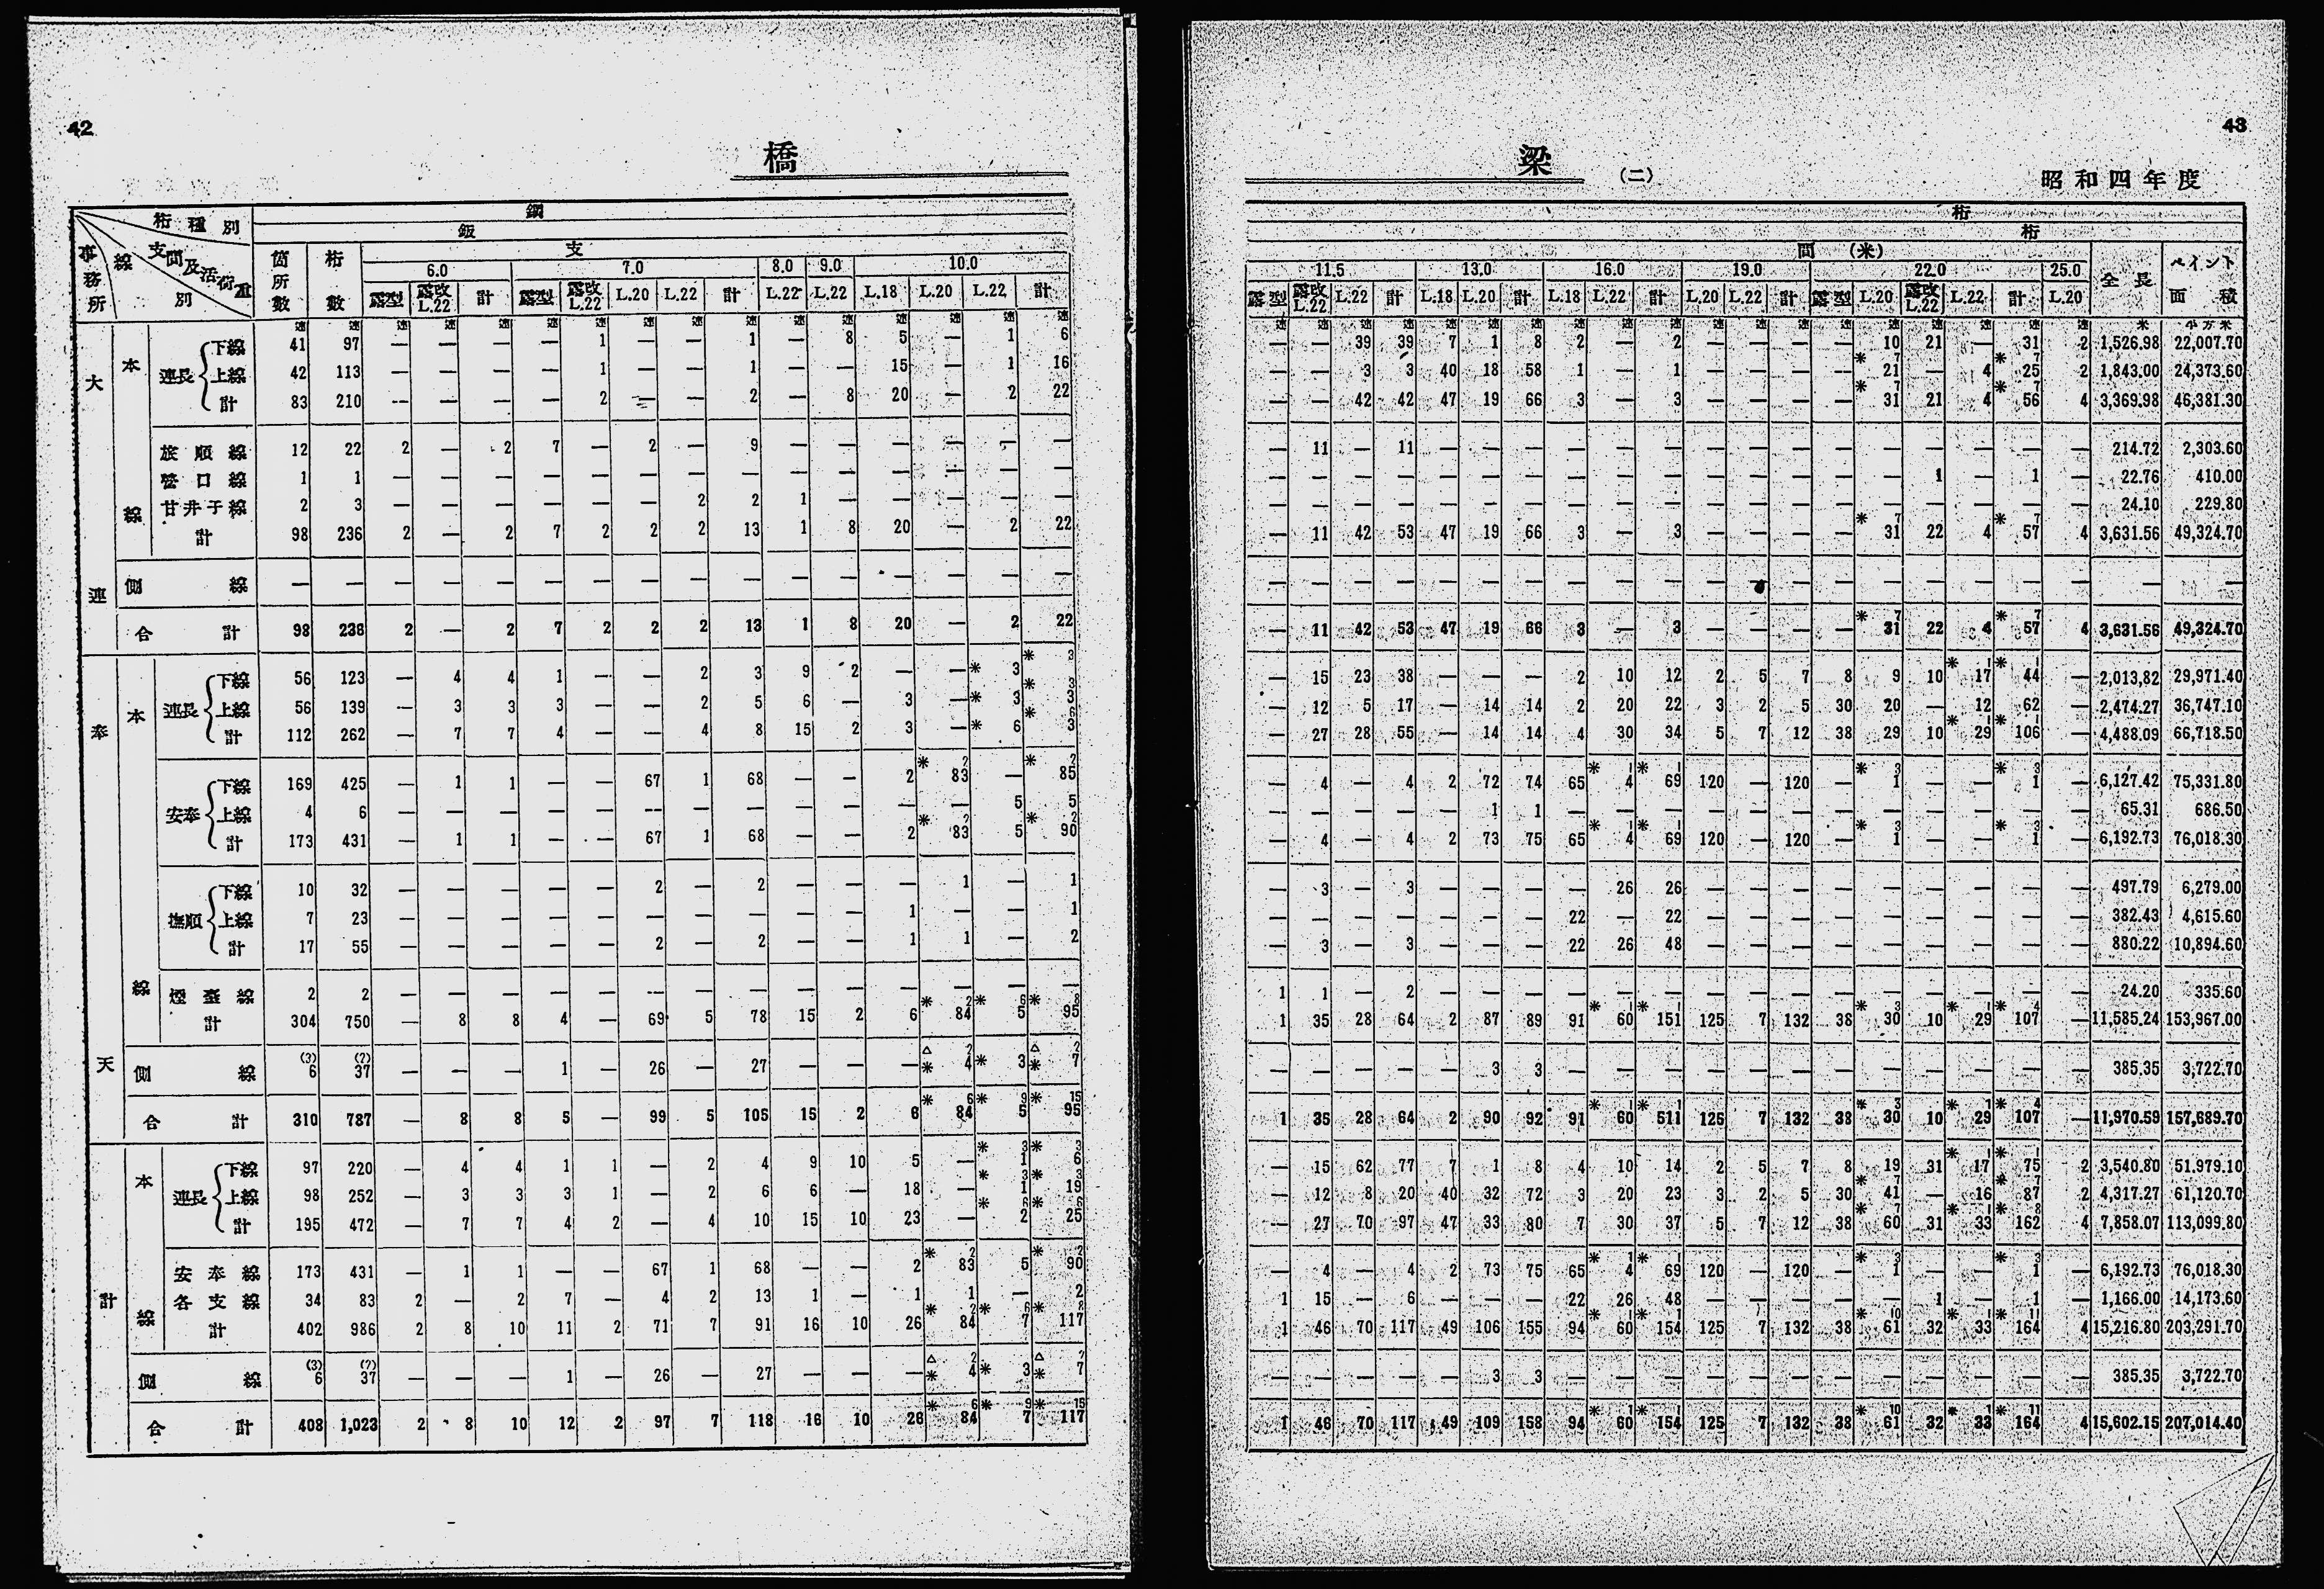 42
橋
桁種別
支間及活荷重
線別
事務所
鋼
鈑
支
箇所数 桁数 6.0 7.0 8.0 9.0 10.0
露型 露改L.22 計 露型 露改L.22 L.20 L.22 計 L.22 L.22 L.18 L.20 L.22 計
大連
本線
連長 下線 41 97 — — — — 1 — — 1 — 8 5 — 1 6
上線 42 113 — — — — 1 — — 1 — — 15 — 1 16
計 83 210 — — — — 2 — — 2 — 8 20 — 2 22
旅順線 12 22 2 — 2 7 — 2 — 9 — — — — — —
営口線 1 1 — — — — — — — — — — — — — —
甘井子線 2 3 — — — — — — 2 2 1 — — — — —
計 98 236 2 — 2 7 2 2 2 13 1 8 20 — 2 22
側線 — — — — — — — — — — — — — — — —
合計 98 236 2 — 2 7 2 2 2 13 1 8 20 — 2 22
奉天
本線
連長 下線 56 123 — 4 4 1 — — 2 3 9 2 — — *3 *3
上線 56 139 — 3 3 3 — — 2 5 6 — 3 — *3 *3 3
計 112 262 — 7 7 4 — — 4 8 15 2 3 — *6 *6 3
安奉 下線 169 425 — 1 1 — — 67 1 68 — — 2 *2 83 — *2 85
上線 4 6 — — — — — — — — — — — — 5 5
計 173 431 — 1 1 — — 67 1 68 — — 2 *2 83 5 *2 90
撫順 下線 10 32 — — — — — 2 — 2 — — — 1 — 1
上線 7 23 — — — — — — — — — — 1 — — 1
計 17 55 — — — — — 2 — 2 — — 1 1 — 2
煙臺線 2 2 — — — — — — — — — — — — — —
計 304 750 — 8 8 4 — 69 5 78 15 2 6 *2 84 *6 5 *8 95
側線 (3) 6 (?) 37 — — — 1 — 26 — 27 — — — △2 *4 *3 △2 *7
合計 310 787 — 8 8 5 — 99 5 105 15 2 6 *6 84 *9 5 *15 95
計
本線
連長 下線 97 220 — 4 4 1 1 — 2 4 9 10 5 — *3 1 *3 6
上線 98 252 — 3 3 3 1 — 2 6 6 — 18 — *3 1 *3 19
計 195 472 — 7 7 4 2 — 4 10 15 10 23 — *6 2 *6 25
安奉線 173 431 — 1 1 — — 67 1 68 — — 2 *2 83 5 *2 90
各支線 34 83 2 — 2 7 — 4 2 13 1 — 1 1 — 2
計 402 986 2 8 10 11 2 71 7 91 16 10 26 *2 84 *6 7 *8 117
側線 (3) 6 (?) 37 — — — 1 — 26 — 27 — — — △2 *4 *3 △2 *7
合計 408 1,023 2 8 10 12 2 97 7 118 16 10 26 *6 84 *9 7 *15 117
43
梁
(二)
昭和四年度
桁
桁
間(米)
11.5 13.0 16.0 19.0 22.0 25.0 全長 ペイント面積
露型 露改L.22 L.22 計 L.18 L.20 計 L.18 L.22 計 L.20 L.22 計 露型 L.20 露改L.22 L.22 計 L.20
米 平方米
— — 39 39 7 1 8 2 — 2 — — — — 10 21 — 31 2 1,526.98 22,007.70
— — 3 3 40 18 58 1 — 1 — — — — *7 21 — 4 *7 25 2 1,843.00 24,373.60
— — 42 42 47 19 66 3 — 3 — — — — *7 31 21 4 *7 56 4 3,369.98 46,381.30
— 11 — 11 — — — — — — — — — — — — — — — 214.72 2,303.60
— — — — — — — — — — — — — — — 1 — 1 — 22.76 410.00
— — — — — — — — — — — — — — — — — — — 24.10 229.80
— 11 42 53 47 19 66 3 — 3 — — — — *7 31 22 4 *7 57 4 3,631.56 49,324.70
— — — — — — — — — — — — — — — — — — — — —
— 11 42 53 47 19 66 3 — 3 — — — — *7 31 22 4 *7 57 4 3,631.56 49,324.70
— 15 23 38 — — — 2 10 12 2 5 7 8 9 10 *1 17 *1 44 — 2,013,82 29,971.40
— 12 5 17 — 14 14 2 20 22 3 2 5 30 20 — 12 62 — 2,474.27 36,747.10
— 27 28 55 — 14 14 4 30 34 5 7 12 38 29 10 *1 29 *1 106 — 4,488.09 66,718.50
— 4 — 4 2 72 74 65 *1 4 *1 69 120 — 120 — *3 1 — — *3 1 — 6,127.42 75,331.80
— — — — — 1 1 — — — — — — — — — — — — 65.31 686.50
— 4 — 4 2 73 75 65 *1 4 *1 69 120 — 120 — *3 1 — — *3 1 — 6,192.73 76,018.30
— 3 — 3 — — — — 26 26 — — — — — — — — — 497.79 6,279.00
— — — — — — — 22 — 22 — — — — — — — — — 382.43 4,615.60
— 3 — 3 — — — 22 26 48 — — — — — — — — — 880.22 10,894.60
1 1 — 2 — — — — — — — — — — — — — — — 24.20 335.60
1 35 28 64 2 87 89 91 *1 60 *1 151 125 7 132 38 *3 30 10 *1 29 *4 107 — 11,585.24 153,967.00
— — — — — 3 3 — — — — — — — — — — — — 385.35 3,722.70
1 35 28 64 2 90 92 91 *1 60 *1 511 125 7 132 38 *3 30 10 *1 29 *4 107 — 11,970.59 157,689.70
— 15 62 77 7 1 8 4 10 14 2 5 7 8 19 31 *1 17 *1 75 2 3,540.80 51.979.10
— 12 8 20 40 32 72 3 20 23 3 2 5 30 *7 41 — 16 *7 87 2 4,317.27 61,120.70
— 27 70 97 47 33 80 7 30 37 5 7 12 38 *7 60 31 *1 33 *8 162 4 7,858.07 113,099.80
— 4 — 4 2 73 75 65 *1 4 *1 69 120 — 120 — *3 1 — — *3 1 — 6,192.73 76,018.30
1 15 — 6 — — — 22 26 48 — — — — — 1 — 1 — 1,166.00 14,173.60
1 46 70 117 49 106 155 94 *1 60 *1 154 125 7 132 38 *10 61 32 *1 33 *11 164 4 15,216.80 203,291.70
— — — — — 3 3 — — — — — — — — — — — — 385.35 3,722.70
1 46 70 117 49 109 158 94 *1 60 *1 154 125 7 132 38 *10 61 32 *1 33 *11 164 4 15,602.15 207,014.40